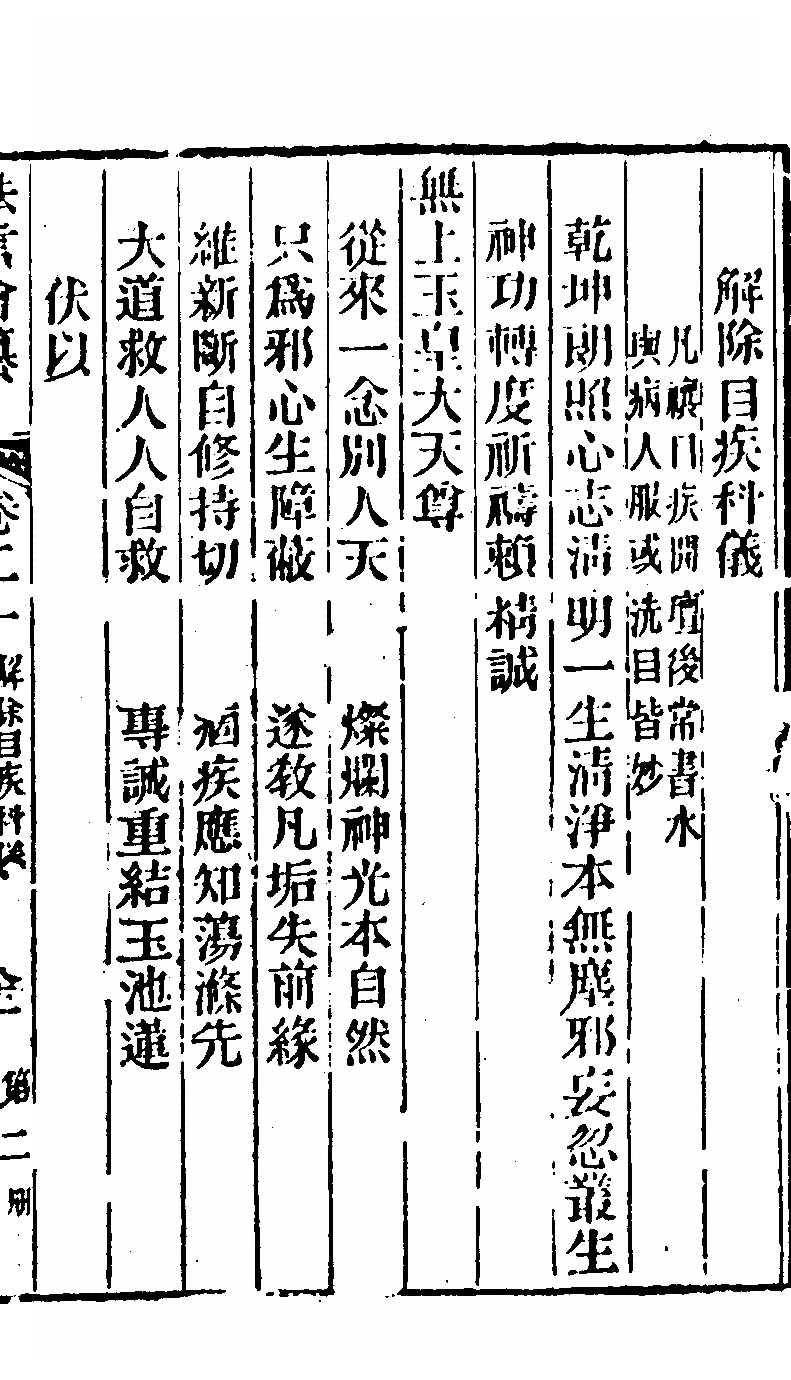 解除目疾科儀
凡禳目疾開壇後常書水
與病人服或洗目皆妙
乾坤朗照心志清明一生清淨本無塵邪妄忽叢生
神功轉度祈禱賴精誠
無上玉皇大天尊
從來一念別人天　燦爛神光本自然
只為邪心生障蔽　遂教凡垢失前緣
維新斷自修持切　痼疾應知蕩滌先
大道救人人自救　專誠重結玉池蓮
伏以
法言會纂　卷二一　解除目疾科儀　全　第二册